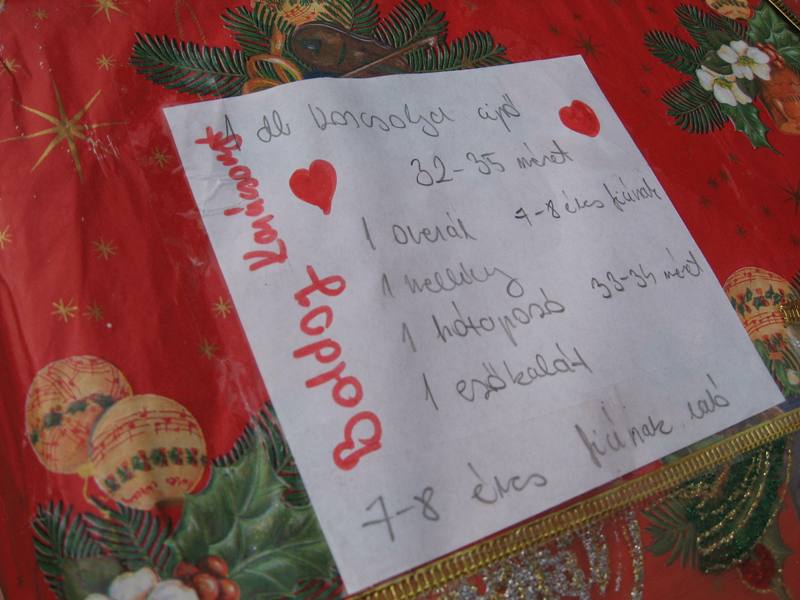 1 db korcsolya cipő
32-35 méret
1 overál 7-8 éves fiúnak
1 mellény
1 hótaposó 33-34 méret
1 esőkabát
7-8 éves fiúnak való
Boldog Karácsonyt